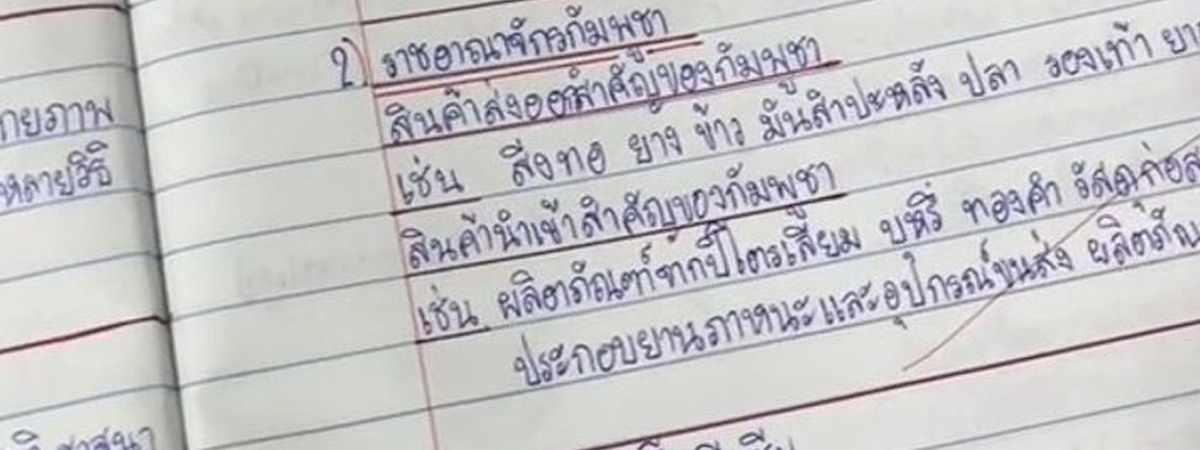 กายภาพ
หลายวิธี
2) ราชอาณาจักรกัมพูชา
สินค้าส่งออกสำคัญของกัมพูชา
เช่น สิ่งทอ ยาง ข้าว มันสำปะหลัง ปลา รองเท้า
สินค้านำเข้าสำคัญของกัมพูชา
เช่น ผลิตภัณฑ์จากปิโตรเลียม บุหรี่ ทองคำ วัสดุก่อส
ประกอบยานภาหนะและอุปกรณ์ขนส่ง ผลิตภัณ
ศาสนา